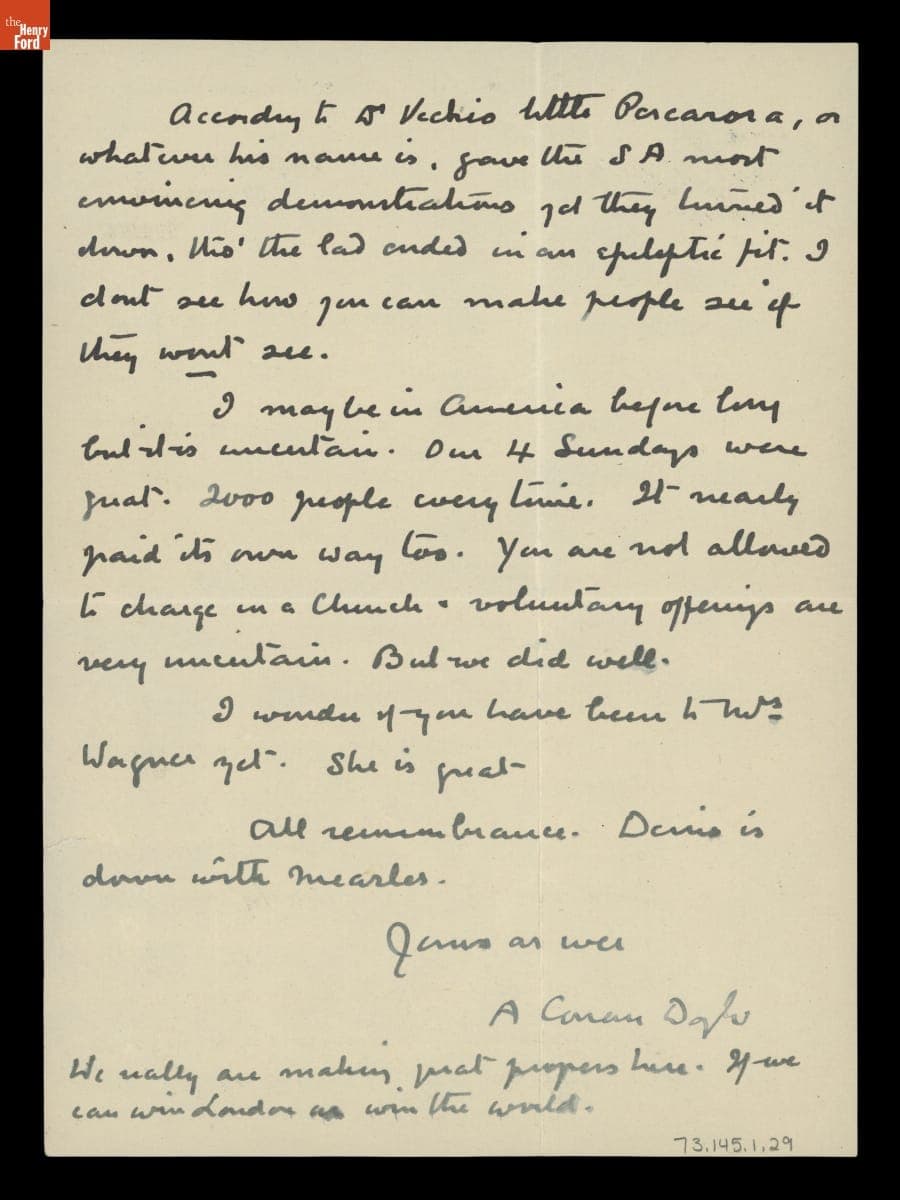 the
Henry
Ford
According to Dr Vechio little Pascarora, or
whatever his name is, gave the S A most
convincing demonstrations yet they turned it
down, tho' the lad ended in an epileptic fit. I
dont see how you can make people see if
they wont see.
I may be in America before long
but it is uncertain. Our 4 Sundays were
great. 2000 people every time. It nearly
paid its own way too. You are not allowed
to charge in a Church & voluntary offerings are
very uncertain. But we did well.
I wonder if you have been to Mrs
Wagner yet. She is great
All remembrance. Denis is
down with measles.
Yours as ever
A Conan Doyle
We really are making great progress here. If we
can win London we win the world.
73.145.1.29